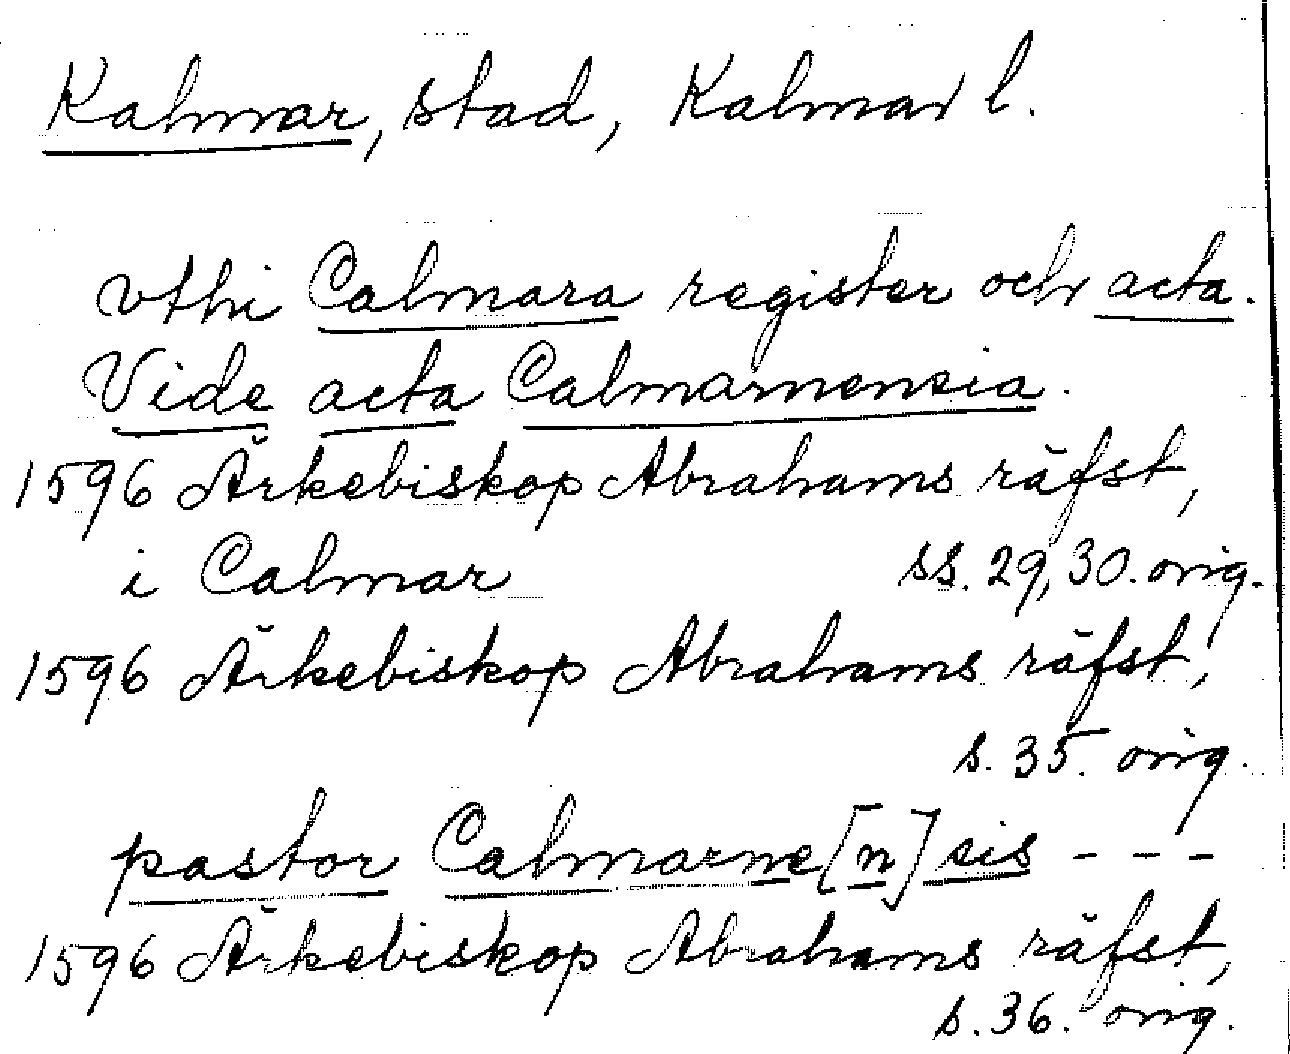 Kalmar, stad, Kalmar l.
vthi Calmara register och acta.
Vide acta Calmarnensia.
1596 Ärkebiskop Abrahams räfst,
i Calmar ss. 29, 30. orig.
1596 Ärkebiskop Abrahams räfst,
s. 35. orig.
pastor Calmarne[n]sis - - -
1596 Ärkebiskop Abrahams räfst,
s. 36. orig.